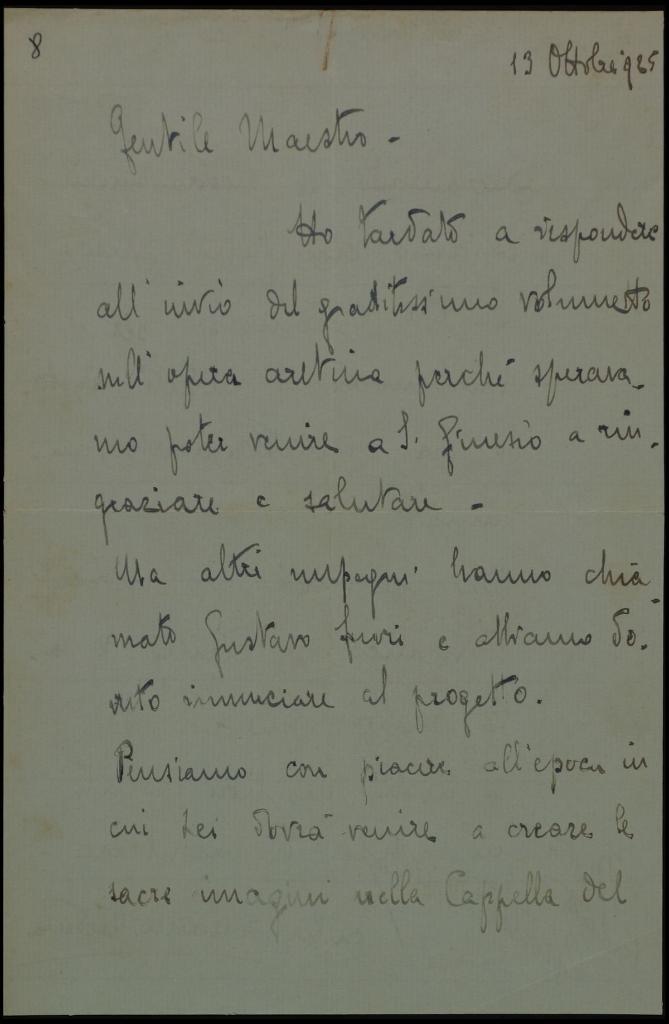 8
13 Ottobre 1925
Gentile Maestro -
Ho tardato a rispondere
all'invio del graditissimo volumetto
sull'opera aretina perchè sperava-
mo poter venire a S. Ginesio a rin-
graziare e salutare -
Ma altri impegni hanno chia-
mato Gustavo fuori e abbiamo do-
vuto rinunciare al progetto.
Pensiamo con piacere all'epoca in
cui Lei dovrà venire a creare le
sacre imagini nella Cappella del